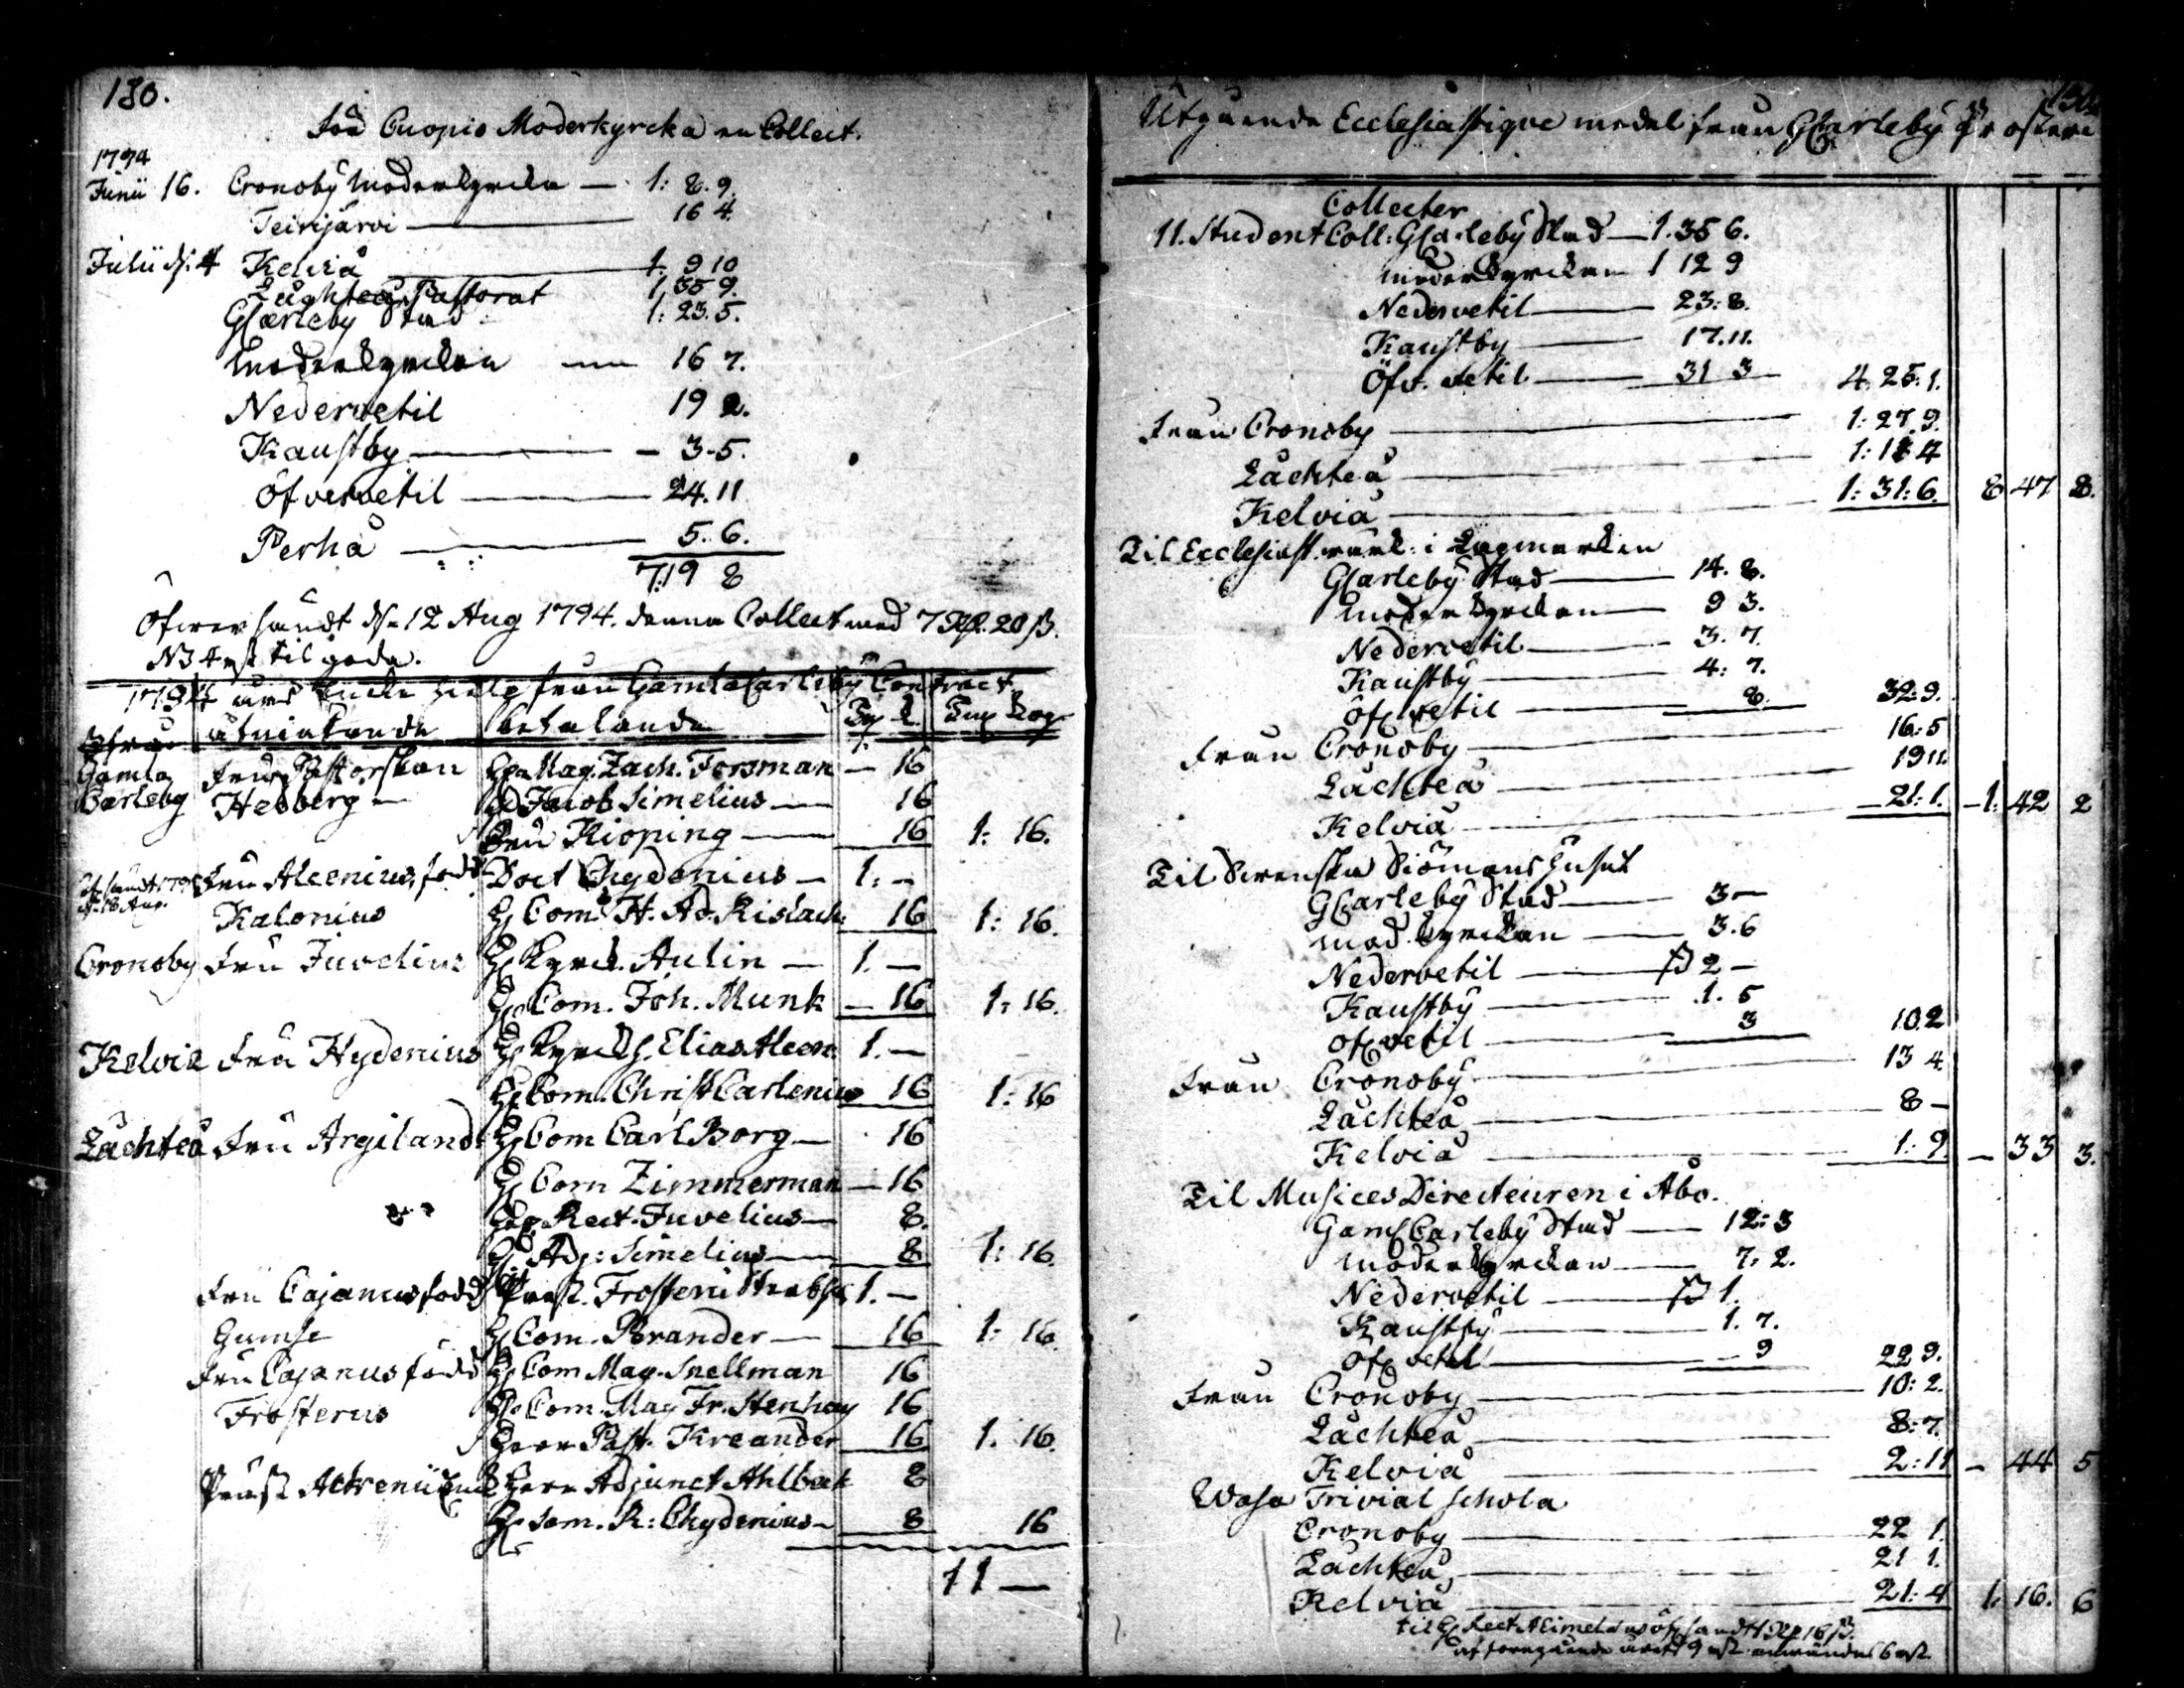 130.
för Cuopio Moderkyrcka en Collect.
1794
Junii 16. Cronoby Moderkyrcka — 1: 8. 9.
Teirijärvi — 16 4.
Julii d. 4 Kelviå — 1. 9 10
Låghteå Pastorat 1, 35 9.
GCarleby Stad 1: 23. 5.
Moderkyrckan — 16 7.
Nedervetil 19 2.
Kaustby — 3-5.
Öfvervetil — 24. 11
Perhå — 5. 6.
7.19 8
Öfwersändt d. 12 Aug 1794. denna Collect med 7 Rd. 20 ß.
NB 4 rst til goda.
1794 års Encke hielp från GamlaCarleby Contract
åtniutande betalande
Gamla Carleby Fru Pastorskan Hedberg — H. Mag. Zach. Forsman — 16
H Jacob Simelius — 16
Fru Kioping — 16 1: 16.
Fru Alcenius, född Kalonius Doct Chydenius — 1: —
d. 18 Aug. H Com. H. Ad. Kislach: 16 1: 16.
Cronoby Fru Juvelius H Kyrck. Aulin — 1. —
H Com. Joh. Munk — 16 1: 16.
Kelviå Fru Hydenius H Kyrckh. Elias Alcen. 1. —
H Com. Christ Carlenius 16 1: 16
Låchteå Fru Argiland: H Com Carl Borg — 16
H Com Zimmerman — 16
H Rect. Juvelius — 8.
H Adj: Simelius — 8 1: 16.
Fru Cajanus född Gumse Prost. Frosteri Sterbh. 1. —
H Com. Brander — 16 1: 16.
Fru Cajanus född Frosterus H Com Mag. Snellman 16
H Com. Mag Fr. Stenhag 16
Herr Past. Kreander 16 1. 16.
Prost Achrenii Herr Adjunct Ahlbek 8
H Com. R: Chydenius — 8 16
11 —
Utgående Ecclesiastique medel från GCarleby Prosteri
Collecter
11. Student Coll: GCarleby Stad — 1. 35 6.
Moderkyrckan 1 12 9
Nedervetil — 23: 8.
Kaustby — 17. 11.
Öfv. vetil — 31 3 4. 25. 1.
från Cronoby — 1: 27 9.
Låchteå — 1: 18 4
Kelviå — 1: 31: 6. 8 47 8.
Til Ecclesiast. värk: i Lapmarken
GCarleby Stad — 14. 8.
Moderkyrckan — 9 3.
Nedervetil — 3. 7.
Kaustby — 4: 7.
Öfvetil — 8. 32: 9.
från Cronoby — 16: 5
Låchteå — 19 11
Kelviå — 21: 1. — 1: 42 2
Til Svenska Siömans huset
GCarleby Stad — 3 —
mod kyrckan — 3. 6
Nedervetil — ß 2 —
Kaustby — 1. 5
Öfvetil — 3 10. 2
från Cronoby — 13 4.
Låchteå — 8 —
Kelviå — 1: 9 — 33 3.
Til Musices Directeuren i Åbo.
Gaml Carleby Stad — 12: 3
Moderkyrckan — 7: 2.
Nedervetil — ß 1.
Kaustby — 1. 7.
Öfvetil — 9 22 9.
från Cronoby — 10: 2.
Låchteå — 8: 7.
Kelviå — 2: 11 — 44 5
Wasa Trivial Schola
Cronoby — 22 1.
Låchteå — 21 1.
Kelviå — 21: 4 1. 16. 6
til H Rect Aeimelaeus öfsändt 1 Rd 16 ß.
af föregående årets 9 rst användes 6 rst